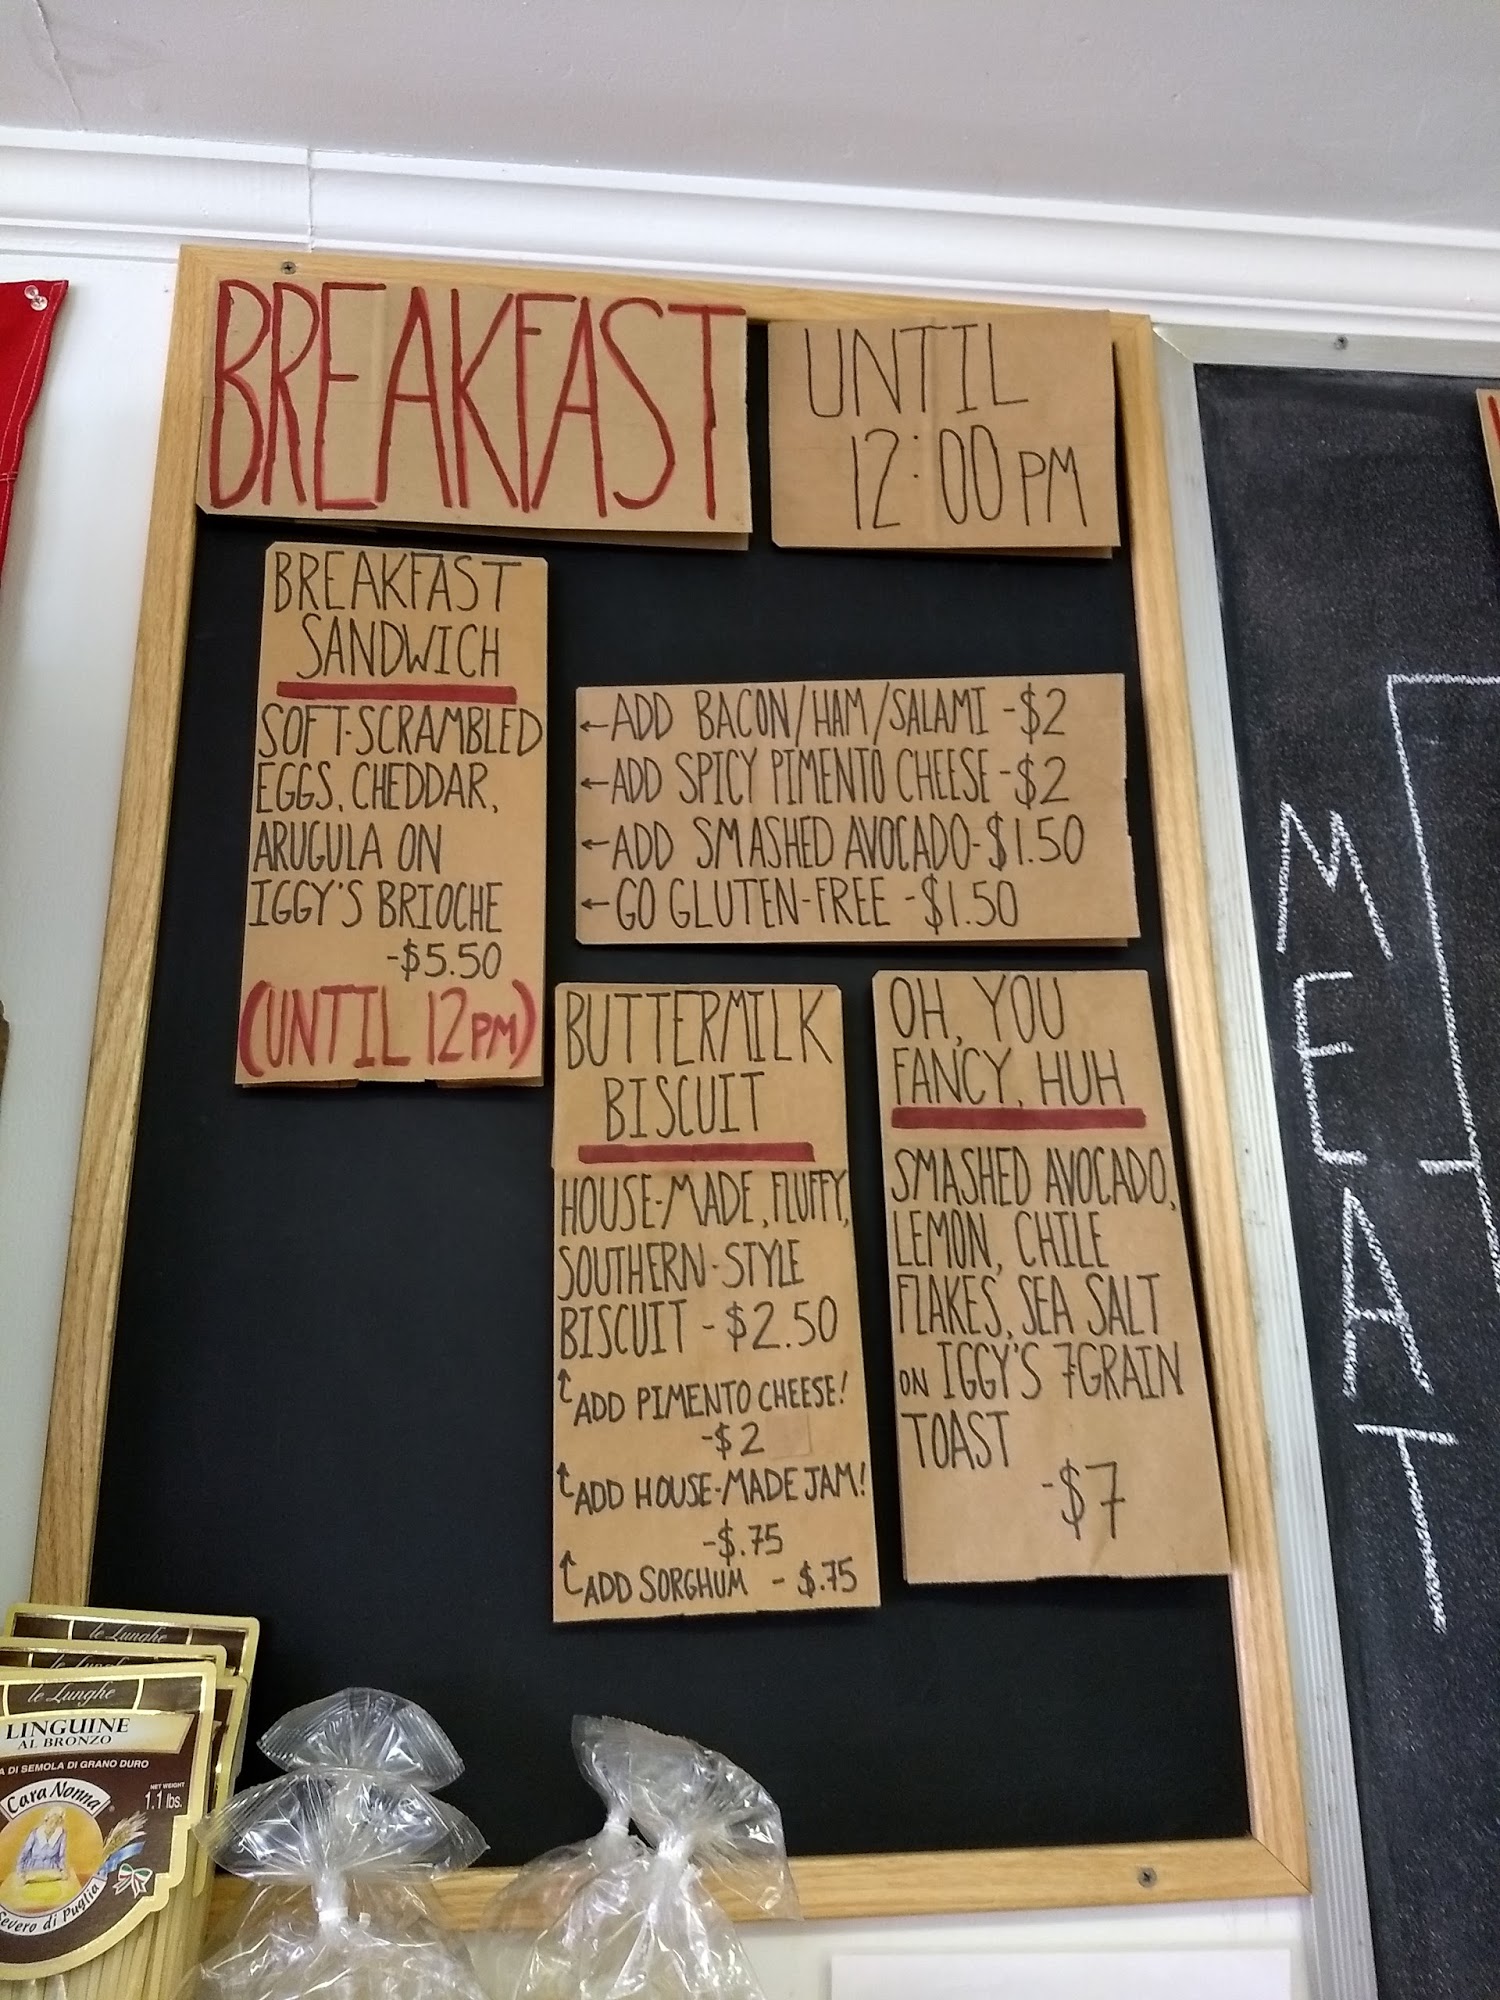 BREAKFAST
UNTIL
12:00 PM
BREAKFAST
SANDWICH
SOFT-SCRAMBLED
EGGS, CHEDDAR,
ARUGULA ON
IGGY'S BRIOCHE
-$5.50
(UNTIL 12PM)
←ADD BACON/HAM/SALAMI -$2
←ADD SPICY PIMENTO CHEESE -$2
←ADD SMASHED AVOCADO-$1.50
←GO GLUTEN-FREE -$1.50
BUTTERMILK
BISCUIT
HOUSE-MADE, FLUFFY,
SOUTHERN-STYLE
BISCUIT - $2.50
ADD PIMENTO CHEESE!
-$2
ADD HOUSE-MADE JAM!
-$.75
ADD SORGHUM - $.75
OH, YOU
FANCY, HUH
SMASHED AVOCADO,
LEMON, CHILE
FLAKES, SEA SALT
ON IGGY'S 7GRAIN
TOAST
-$7
MEAT
le Lunghe
le Lunghe
le Lunghe
LINGUINE
AL BRONZO
A DI SEMOLA DI GRANO DURO
NET WEIGHT
1.1 lbs.
Cara Nonna
Severo di Puglia